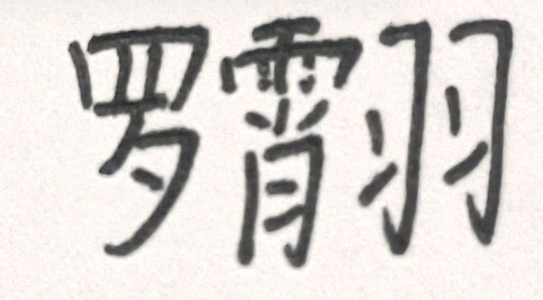 罗霄羽